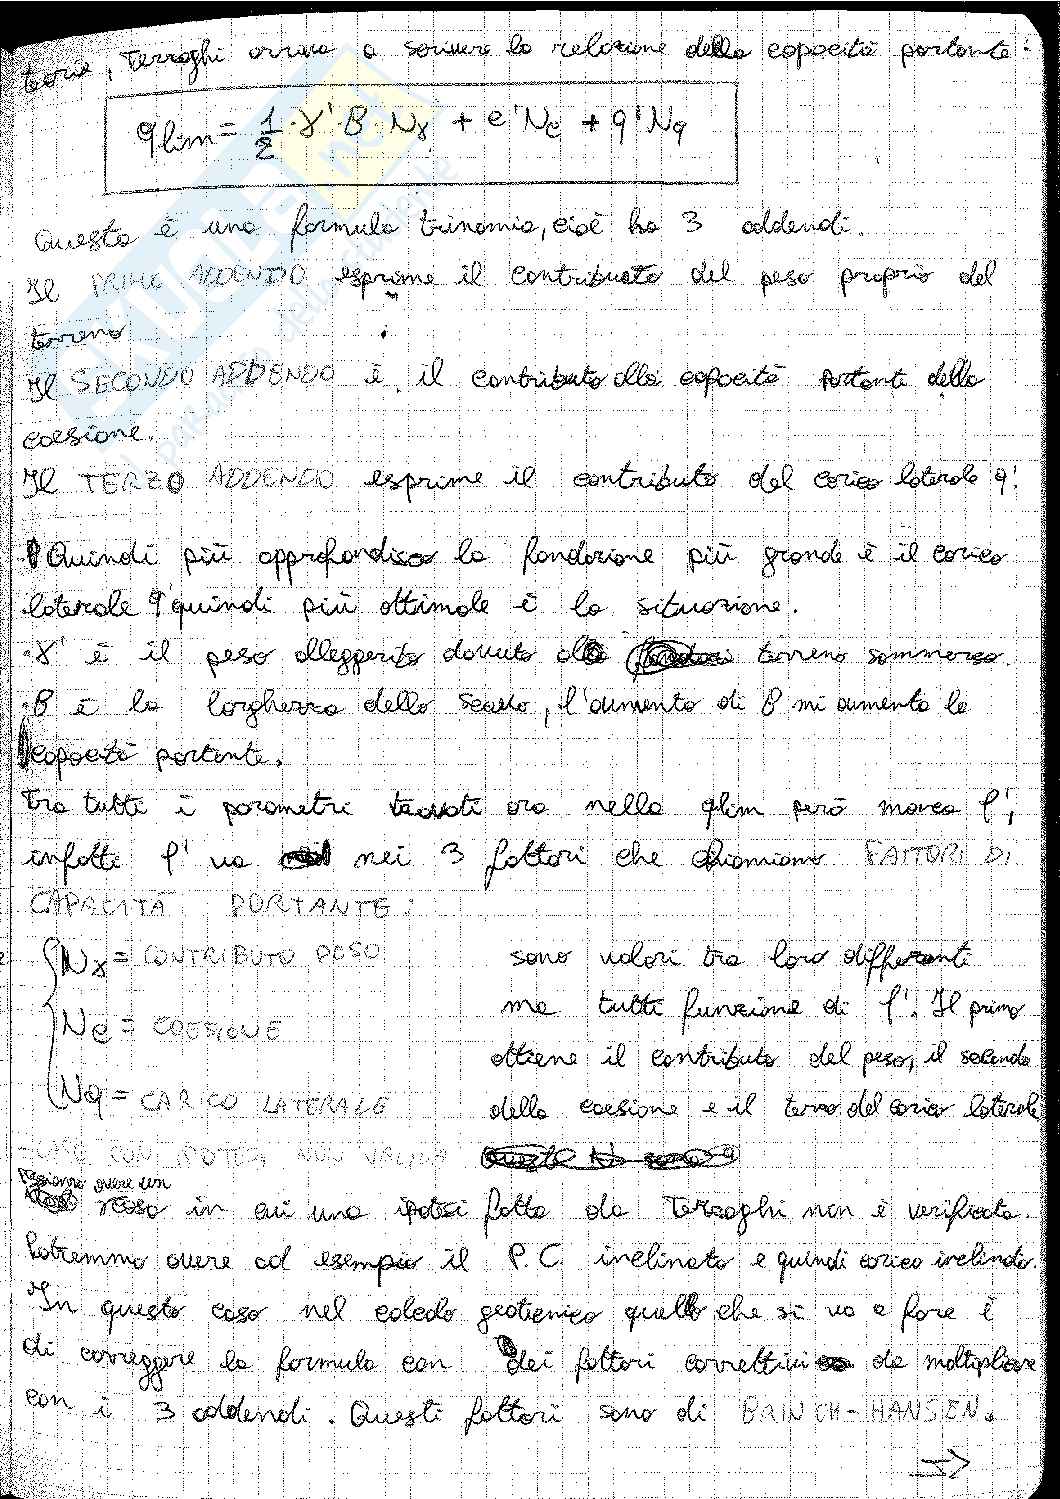 teorie, Terzaghi arriva a scrivere la relazione della capacità portante:
qlim = 1/2 · γ' · B · Nγ + c'Nc + q'Nq
Questa è una formula trinomia, cioè ha 3 addendi.
Il PRIMO ADDENDO esprime il contributo del peso proprio del
terreno
Il SECONDO ADDENDO è il contributo alla capacità portante della
coesione.
Il TERZO ADDENDO esprime il contributo del carico laterale q'.
Quindi più approfondisco la fondazione più grande è il carico
laterale q' quindi più ottimale è la situazione.
· γ' è il peso alleggerito dovuto al terreno sommerso.
· B è la larghezza dello scavo, l'aumento di B mi aumenta la
capacità portante.
Tra tutti i parametri trovati ora nella qlim però manca φ',
infatti φ' va nei 3 fattori che chiamiamo FATTORI DI
CAPACITÀ PORTANTE:
Nγ = CONTRIBUTO PESO
Nc = COESIONE
Nq = CARICO LATERALE
sono valori tra loro differenti
ma tutti funzione di φ'. Il primo
ottiene il contributo del peso, il secondo
della coesione e il terzo del carico laterale
CASO CON IPOTESI NON VALIDA
Possiamo avere un
caso in cui una ipotesi fatta da Terzaghi non è verificata.
Potremmo avere ad esempio il P.C. inclinato e quindi carico inclinato.
In questo caso nel calcolo geotecnico quello che si va a fare è
di correggere la formula con dei fattori correttivi da moltiplicare
con i 3 addendi. Questi fattori sono di BRINCH-HANSEN.